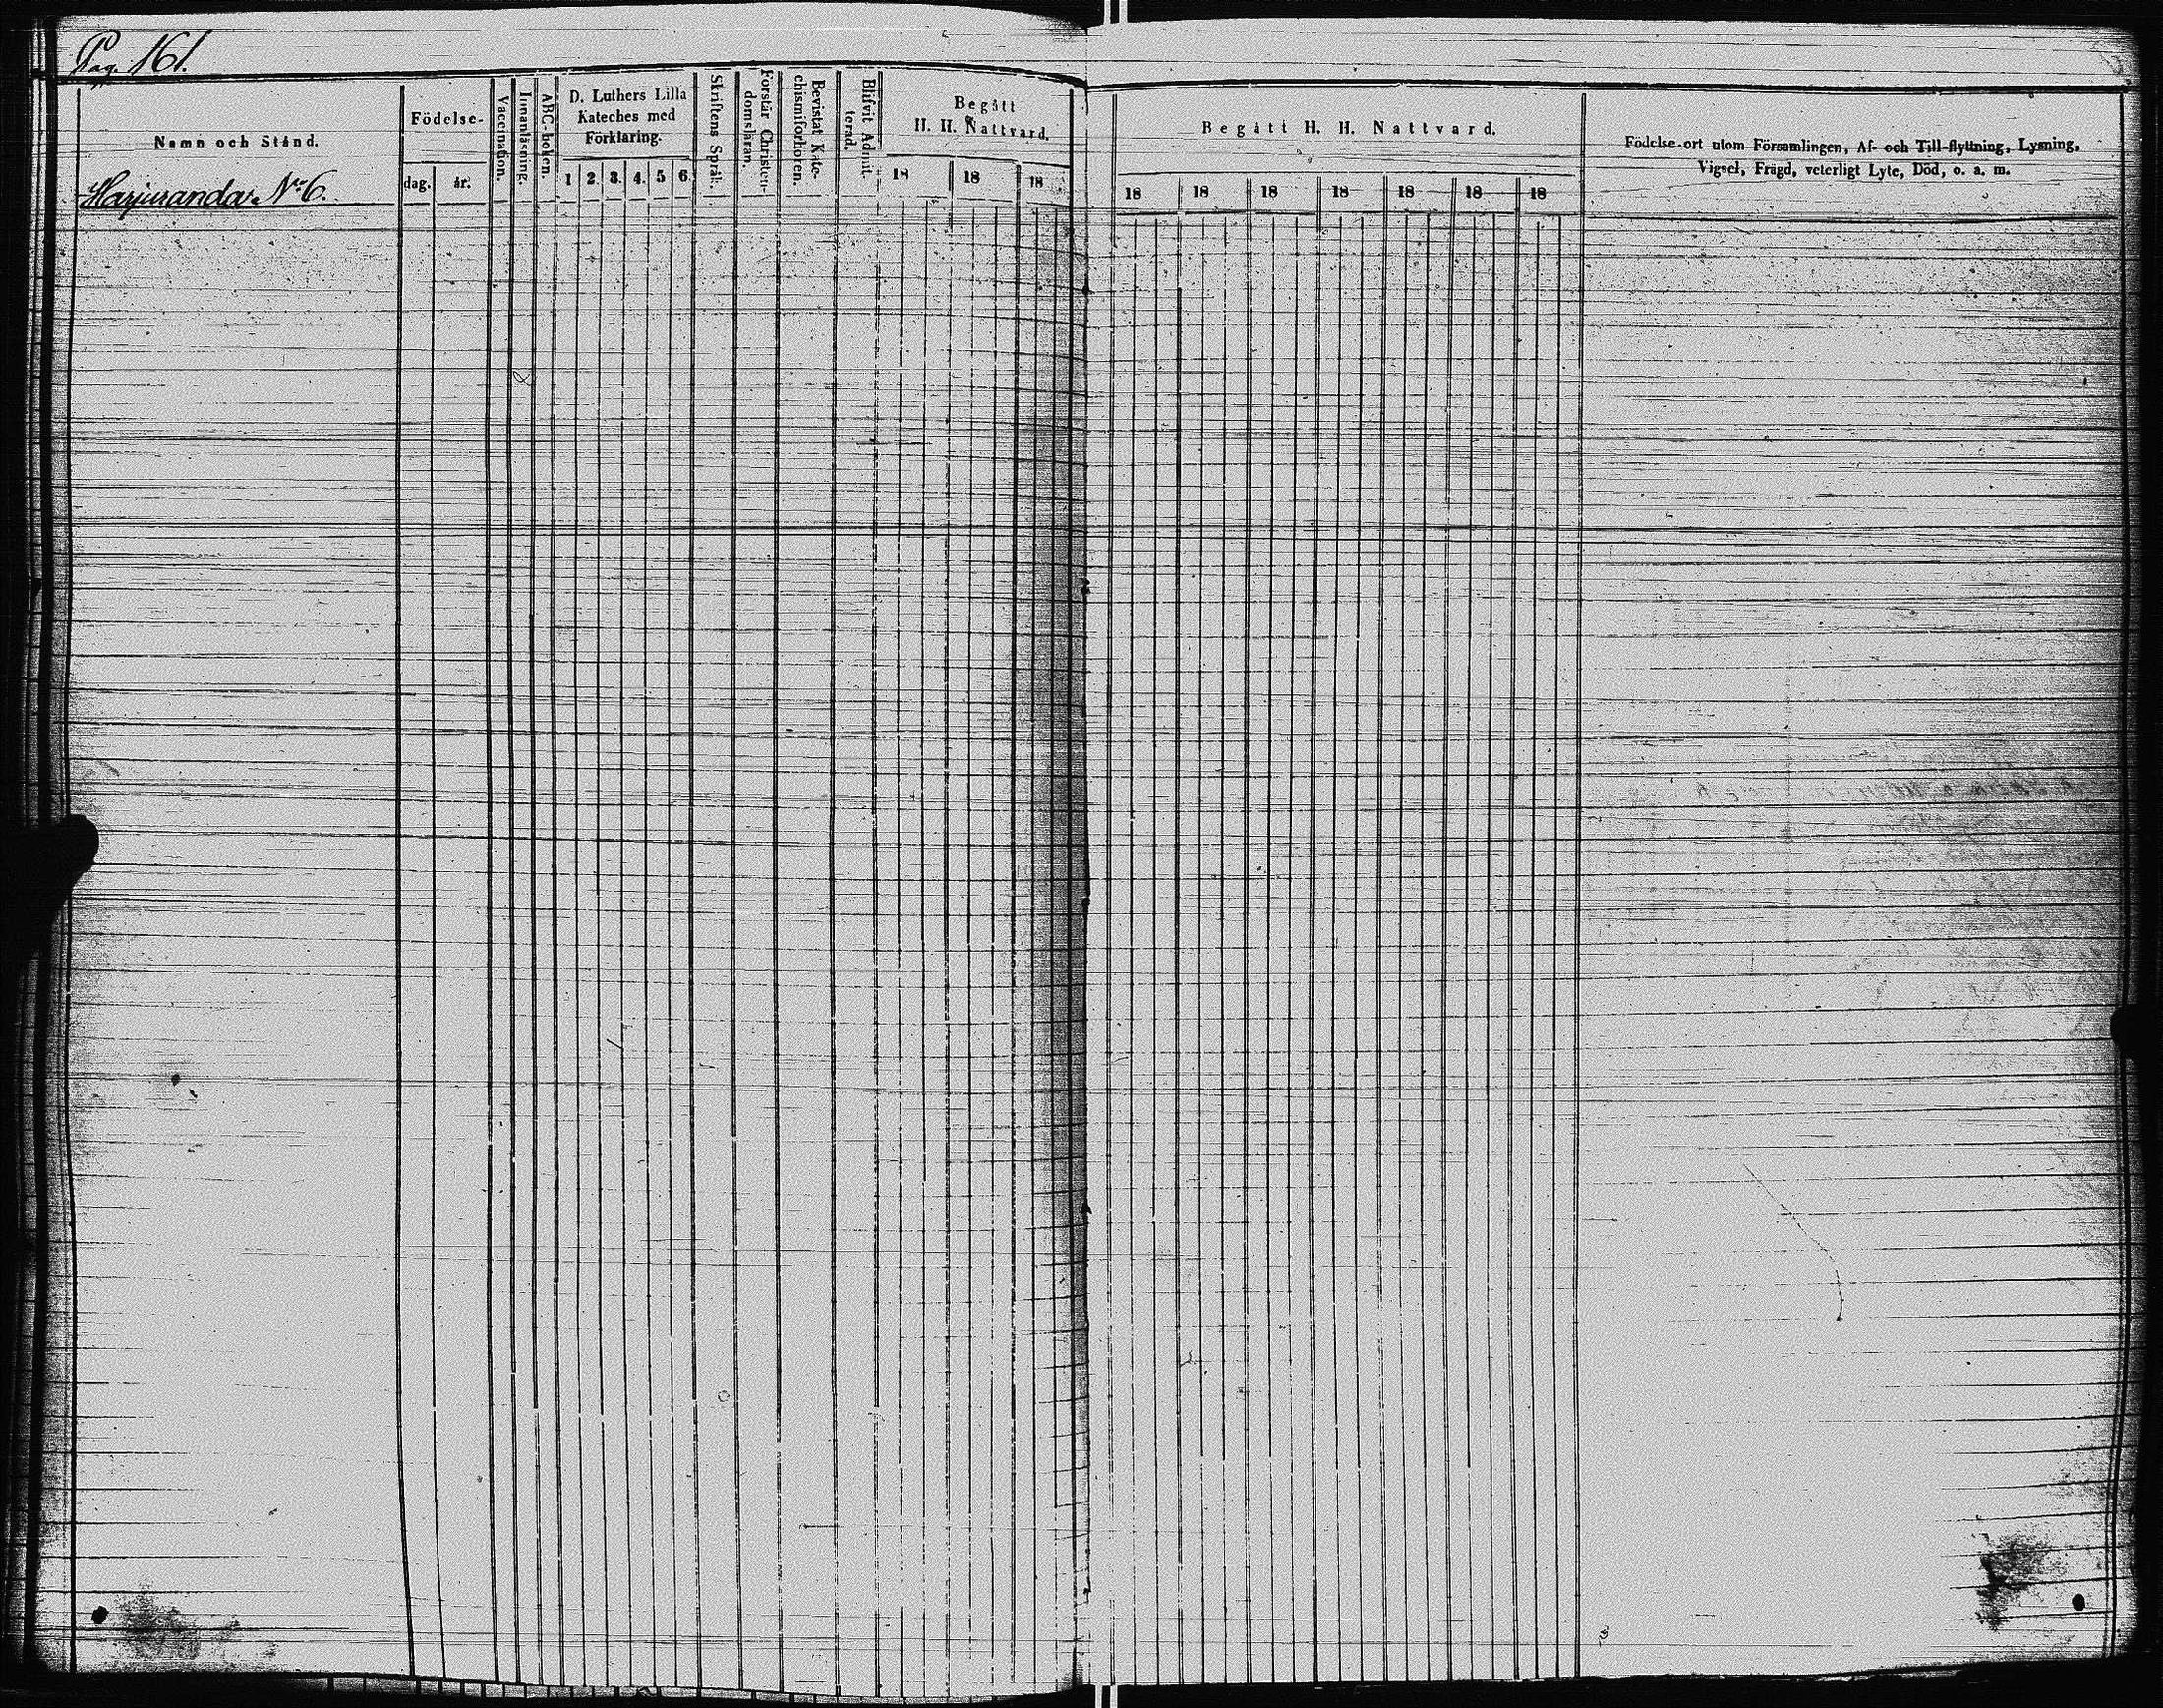 Pag. 161.
Namn och Stånd.
Harjuranda. No 6.
Födelse-
dag.
år.
Vaccination.
Innanläsning.
ABC-boken.
D. Luthers Lilla
Kateches med
Förklaring.
1 2. 3. 4. 5 6.
Skriftens Språk.
Förstår Christen-
domsläran.
Bevistat Kate-
chismiförhören.
Blifvit Admit-
terad.
Begått
H. H. Nattvard.
18 18 18
Begått H. H. Nattvard.
18 18 18 18 18 18 18
Födelse-ort utom Församlingen, Af- och Till-flyttning, Lysning,
Vigsel, Frägd, veterligt Lyte, Död, o. a. m.